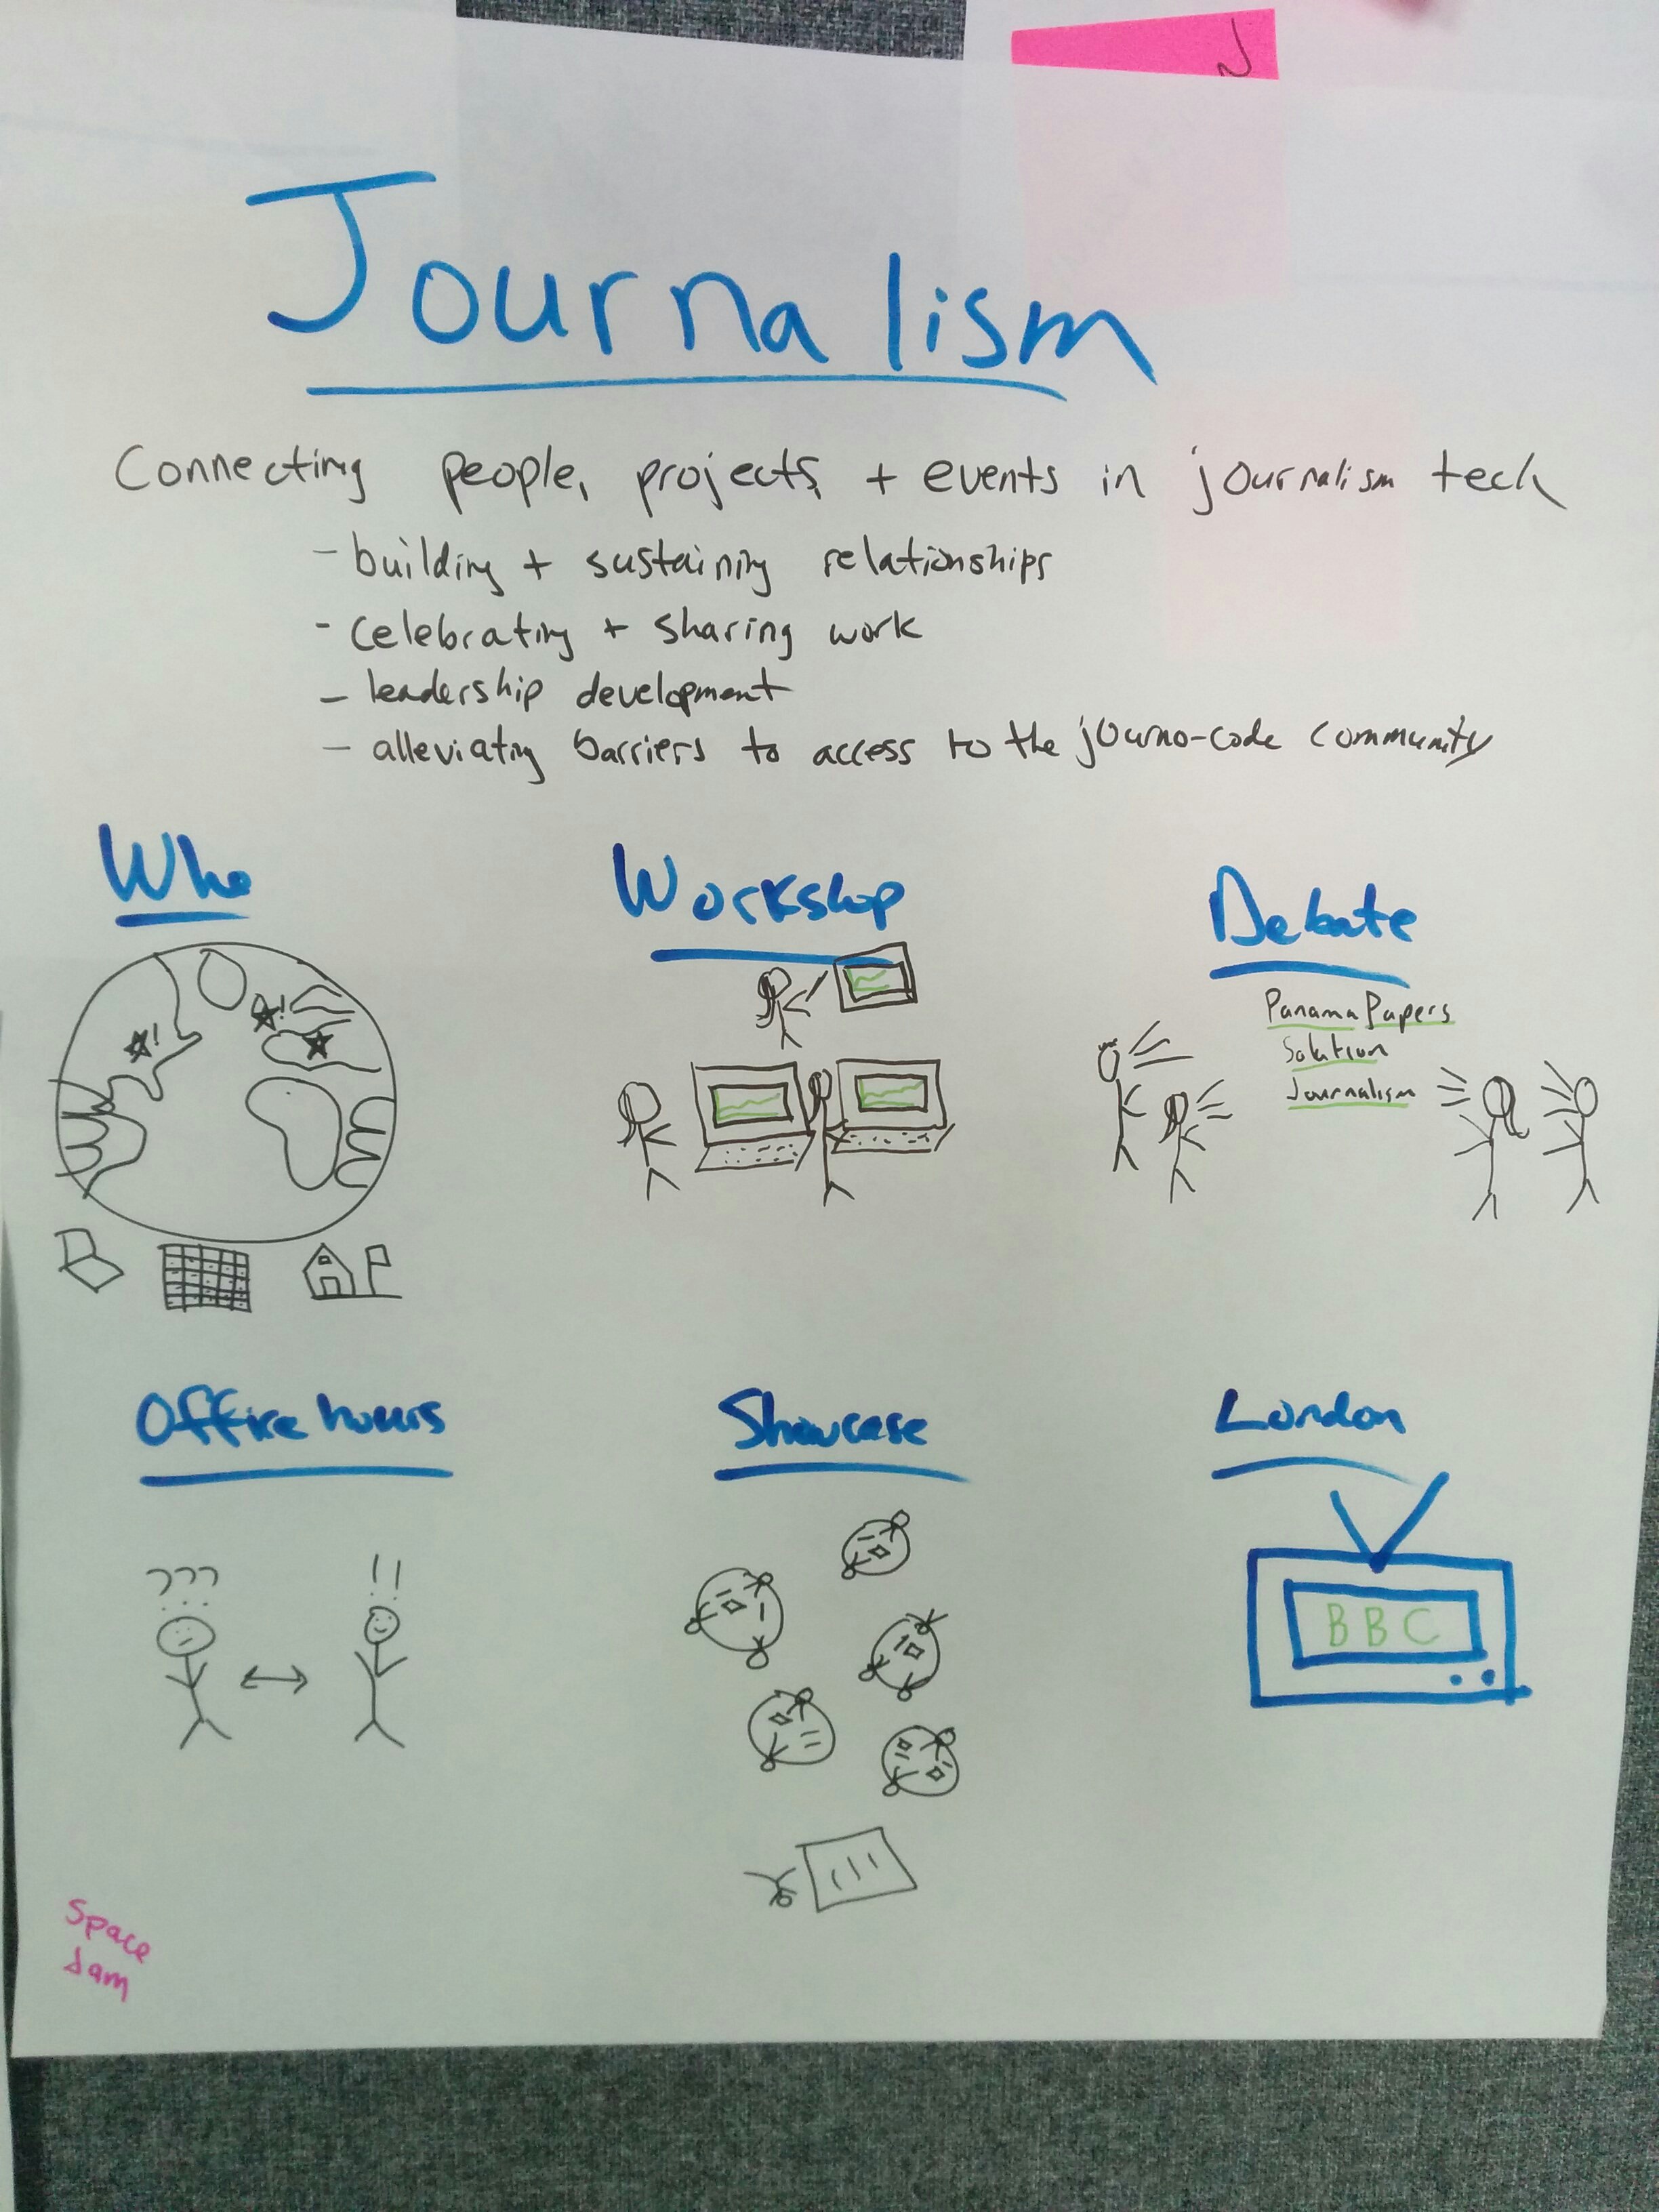 J
Journalism
Connecting people, projects, + events in journalism tech
- building + sustaining relationships
- celebrating + sharing work
- leadership development
- alleviating barriers to access to the journo-code community
Who
Workshop
Debate
Panama Papers
Solution
Journalism
! !
Office hours
Showcase
London
???
!!
BBC
Space
Jam